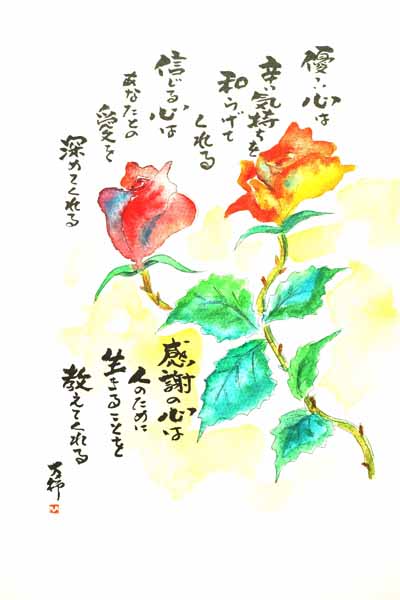 優しい心は
辛い気持ちを
和らげて
くれる
信じる心は
あなたとの
愛を
深めてくれる
感謝の心は
人のために
生きることを
教えてくれる